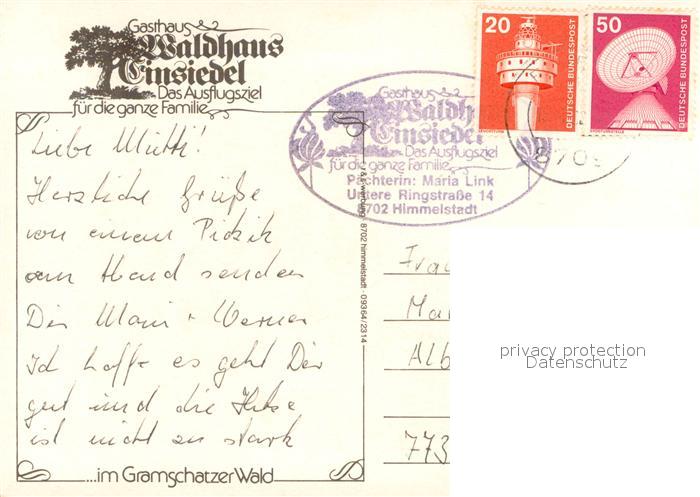 Gasthaus
Waldhaus
Einsiedel
Das Ausflugsziel
für die ganze Familie
20
DEUTSCHE BUNDESPOST
LEUCHTTURM
50
DEUTSCHE BUNDESPOST
ERDFUNKSTELLE
870
Gasthaus
Waldh
Einsiedel
Das Ausflugsziel
für die ganze Familie
Pächterin: Maria Link
Untere Ringstraße 14
8702 Himmelstadt
Liebe Mutti!
Herzliche Grüße
von einem Picknik
am Abend senden
Dir Marie + Werner
Ich hoffe es geht Dir
gut und die Hitze
ist nicht zu stark
8702 himmelstadt · 09364/2314
Frau
Mar
Alb
773
privacy protection
Datenschutz
...im Gramschatzer Wald